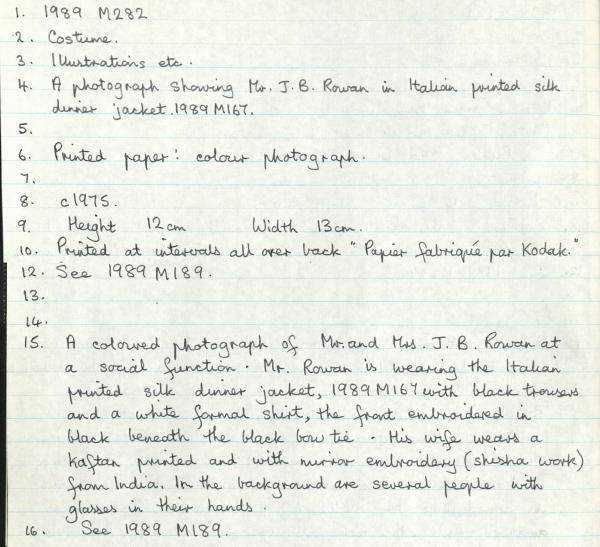 1. 1989 M282
2. Costume.
3. Illustrations etc.
4. A photograph showing Mr. J. B. Rowan in Italian printed silk
dinner jacket. 1989 M167.
5.
6. Printed paper: colour photograph.
7.
8. c1975.
9. Height 12cm Width 13cm.
10. Printed at intervals all over back "Papier fabriqué par Kodak."
12. See 1989 M189.
13.
14.
15. A coloured photograph of Mr. and Mrs. J. B. Rowan at
a social function. Mr. Rowan is wearing the Italian
printed silk dinner jacket, 1989 M167 with black trousers
and a white formal shirt, the front embroidered in
black beneath the black bow tie. His wife wears a
kaftan printed and with mirror embroidery (shisha work)
from India. In the background are several people with
glasses in their hands.
16. See 1989 M189.